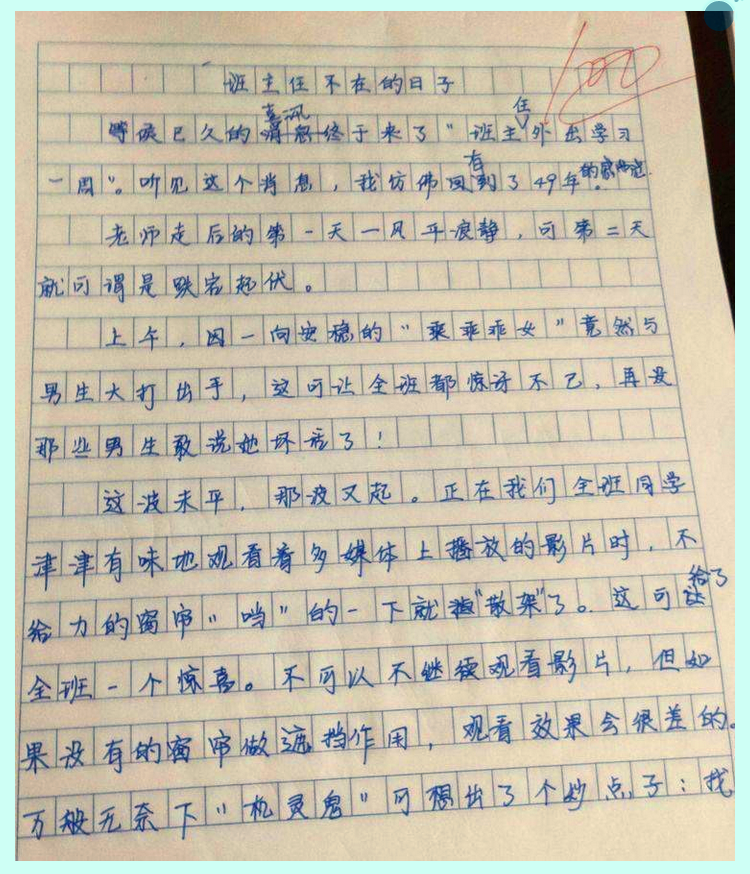 100
班主任不在的日子
等候已久的喜讯终于来了"班主任外出学习
一周"。听见这个消息，我仿佛有回到了49年的
老师走后的第一天一风平浪静，可第二天
就可谓是跌宕起伏。
上午，因一向安稳的"乘乖乖女"竟然与
男生大打出手，这可让全班都惊讶不已，再没
那些男生敢说她坏话了！
这波未平，那波又起。正在我们全班同学
津津有味地观看着多媒体上播放的影片时，不
给力的窗帘"当"的一下就"散架"了。这可给了
全班一个惊喜。不可以不继续观看影片，但如
果没有的窗帘做遮挡作用，观看效果会很差的。
万般无奈下"机灵鬼"可想出了个妙点子：找